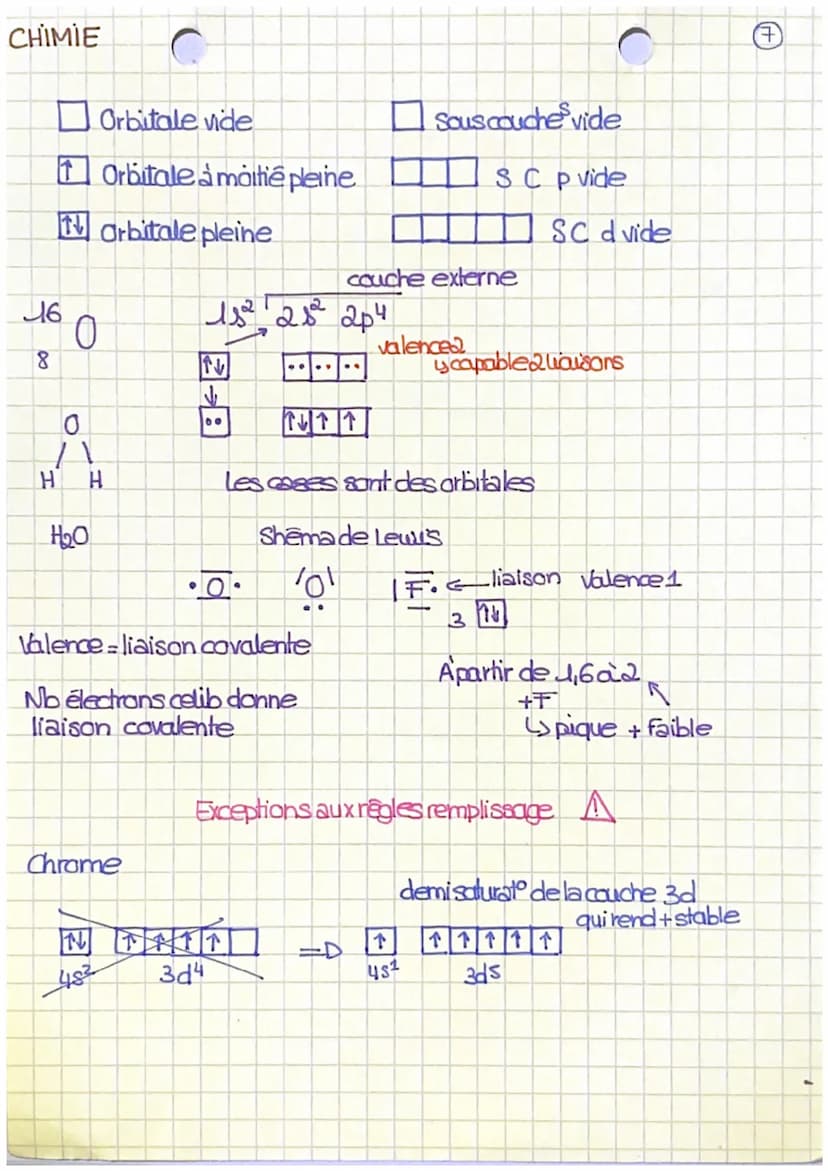 CHIMIE
7
Orbitale vide
Souscouche s vide
↑ Orbitale à moitié pleine
S C p vide
↑↓ Orbitale pleine
SC d vide
couche externe
16
8
O
1s² 2s² 2p⁴
valence2
↳capable2liaisons
↑↓
↑↓ ↑ ↑
O
H H
Les cases sont des orbitales
H₂O
Shéma de Lewis
O
O
F
← liaison Valence 1
3 ↑↓
Valence = liaison covalente
A partir de 1,6 à 2
Nb électrons celib donne
liaison covalente
+F
↳ pique + faible
Exceptions aux règles remplissage ⚠
Chrome
demisaturat° de la couche 3d
qui rend + stable
↑↓ ↑ ↑ ↑ ↑
=D
↑ ↑ ↑ ↑ ↑ ↑
4s² 3d⁴
4s¹ 3d5